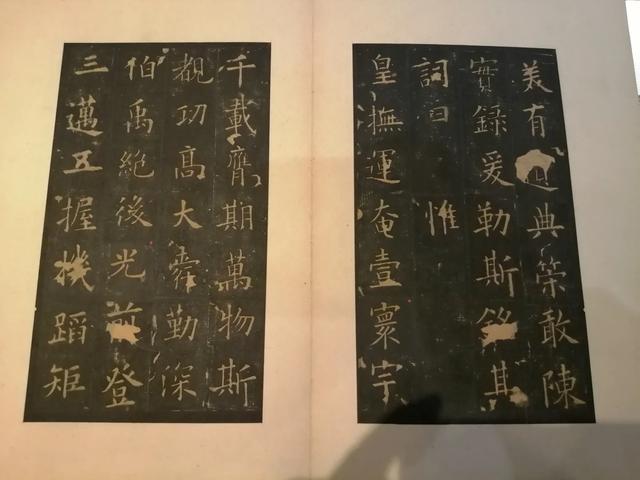 美有典策敢陳
實錄爰勒斯銘其
詞曰 惟
皇撫運奄壹寰宇
千載膺期萬物斯
覩功高大舜勤深
伯禹絕後光前登
三邁五握機蹈矩